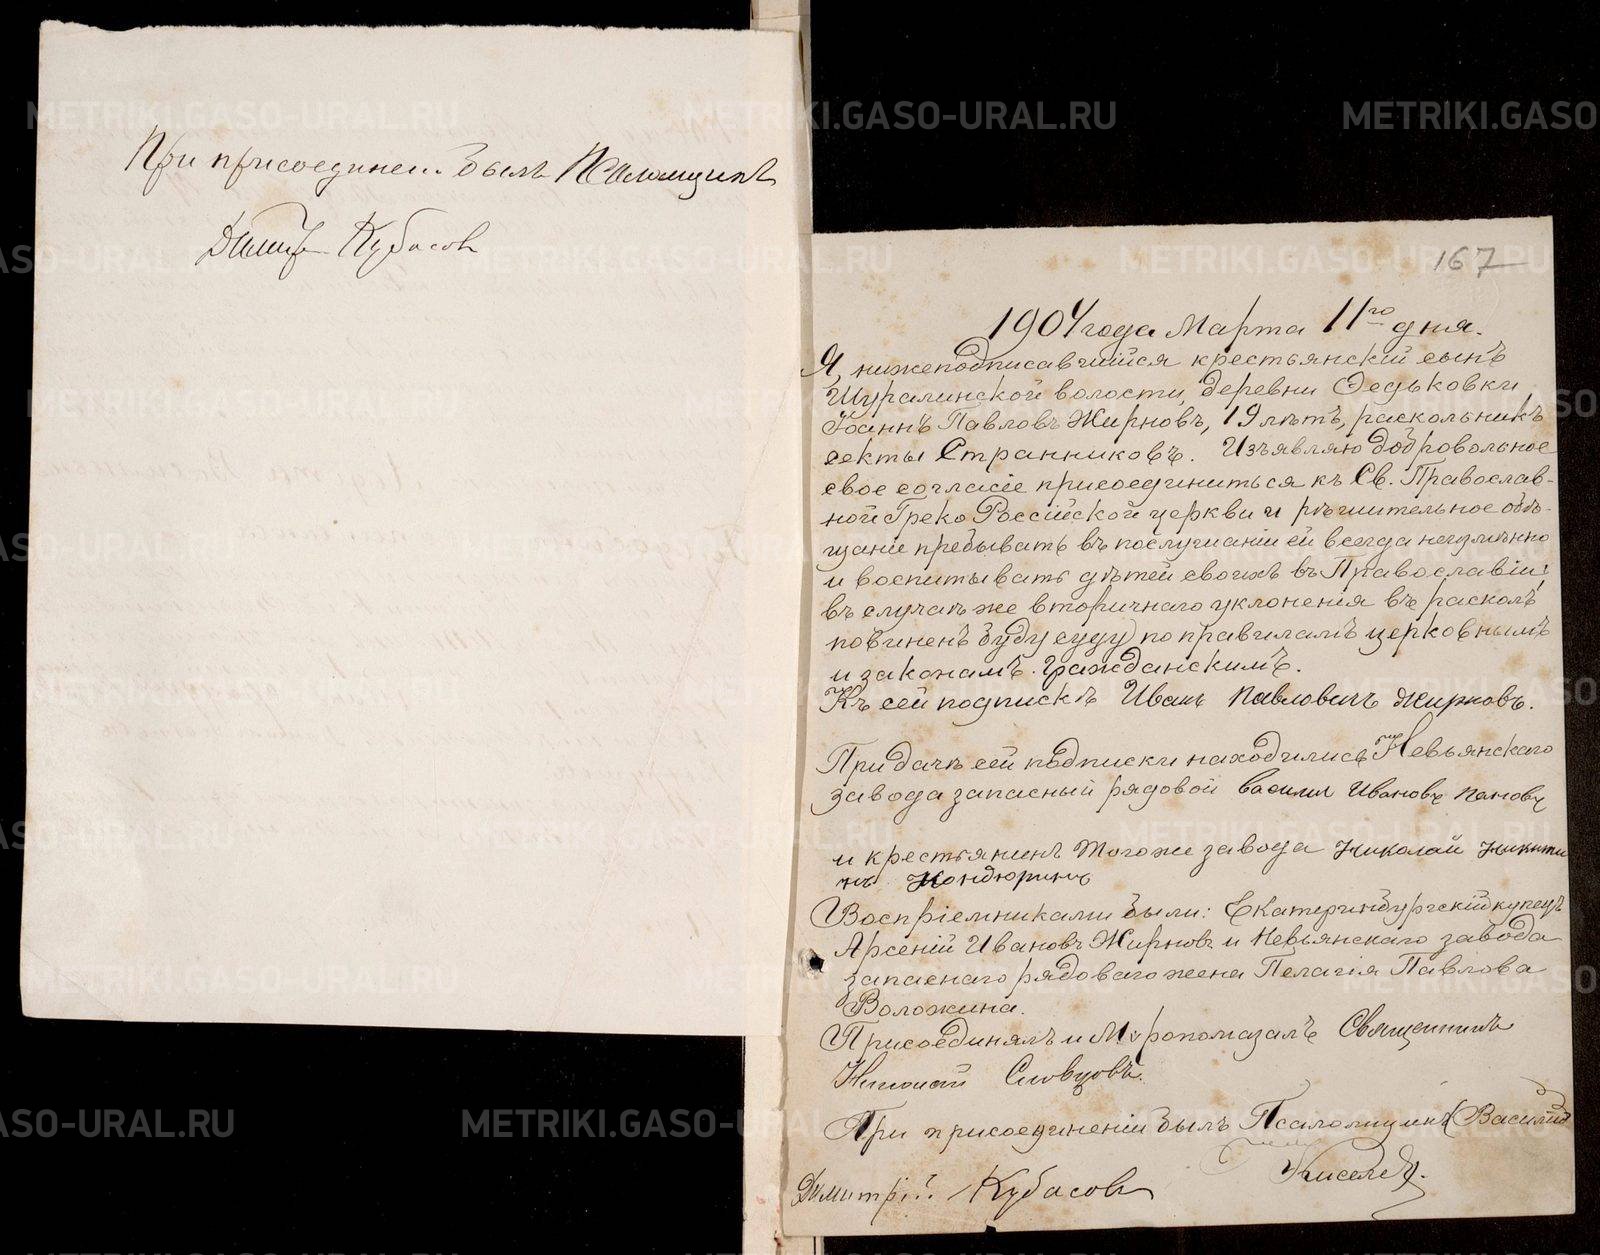 При присоединен.. былъ Псаломщикъ
Димитр Кубасовъ
167
1904 года Марта 11го дня.
Я, нижеподписавшийся крестьянский сынъ
Шуралинской волости, деревни Федьковки
Іоаннъ Павловъ Жирновъ, 19 лѣтъ, раскольникъ
секты Странниковъ. Изъявляю добровольное
свое согласіе присоединиться къ Св. Православ-
ной Греко Россійской церкви и рѣшительное обѣ-
щаніе пребывать въ послушаніи ей всегда неизмѣнно
и воспитывать дѣтей своихъ въ Православіи;
въ случаѣ же вторичнаго уклоненія въ расколъ
повиненъ буду суду по правиламъ церковнымъ
и законамъ гражданскимъ.
Къ сей подпискѣ Иванъ Павловичъ Жирновъ.
При дачѣ сей подписки находились Невьянскаго
завода запасный рядовой Василий Ивановъ Пановъ
и крестьянинъ того же завода Николай Никити
нъ Кондюринъ
Воспріемниками были: Екатеринбургскій купецъ
Арсеній Ивановъ Жирновъ и Невьянскаго завода
запаснаго рядоваго жена Пелагія Павлова
Воложина.
Присоединялъ и Мѵропомазалъ Священникъ
Николай Словцовъ.
При присоединеніи былъ Псаломщикъ Василій
Киселевъ.
Димитрій Кубасовъ
METRIKI.GASO-URAL.RU